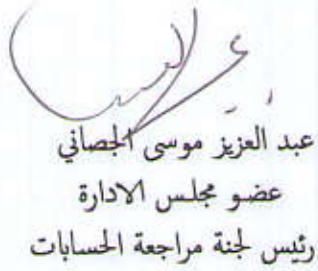 عبد العزيز موسى الجصاني
عضو مجلس الادارة
رئيس لجنة مراجعة الحسابات